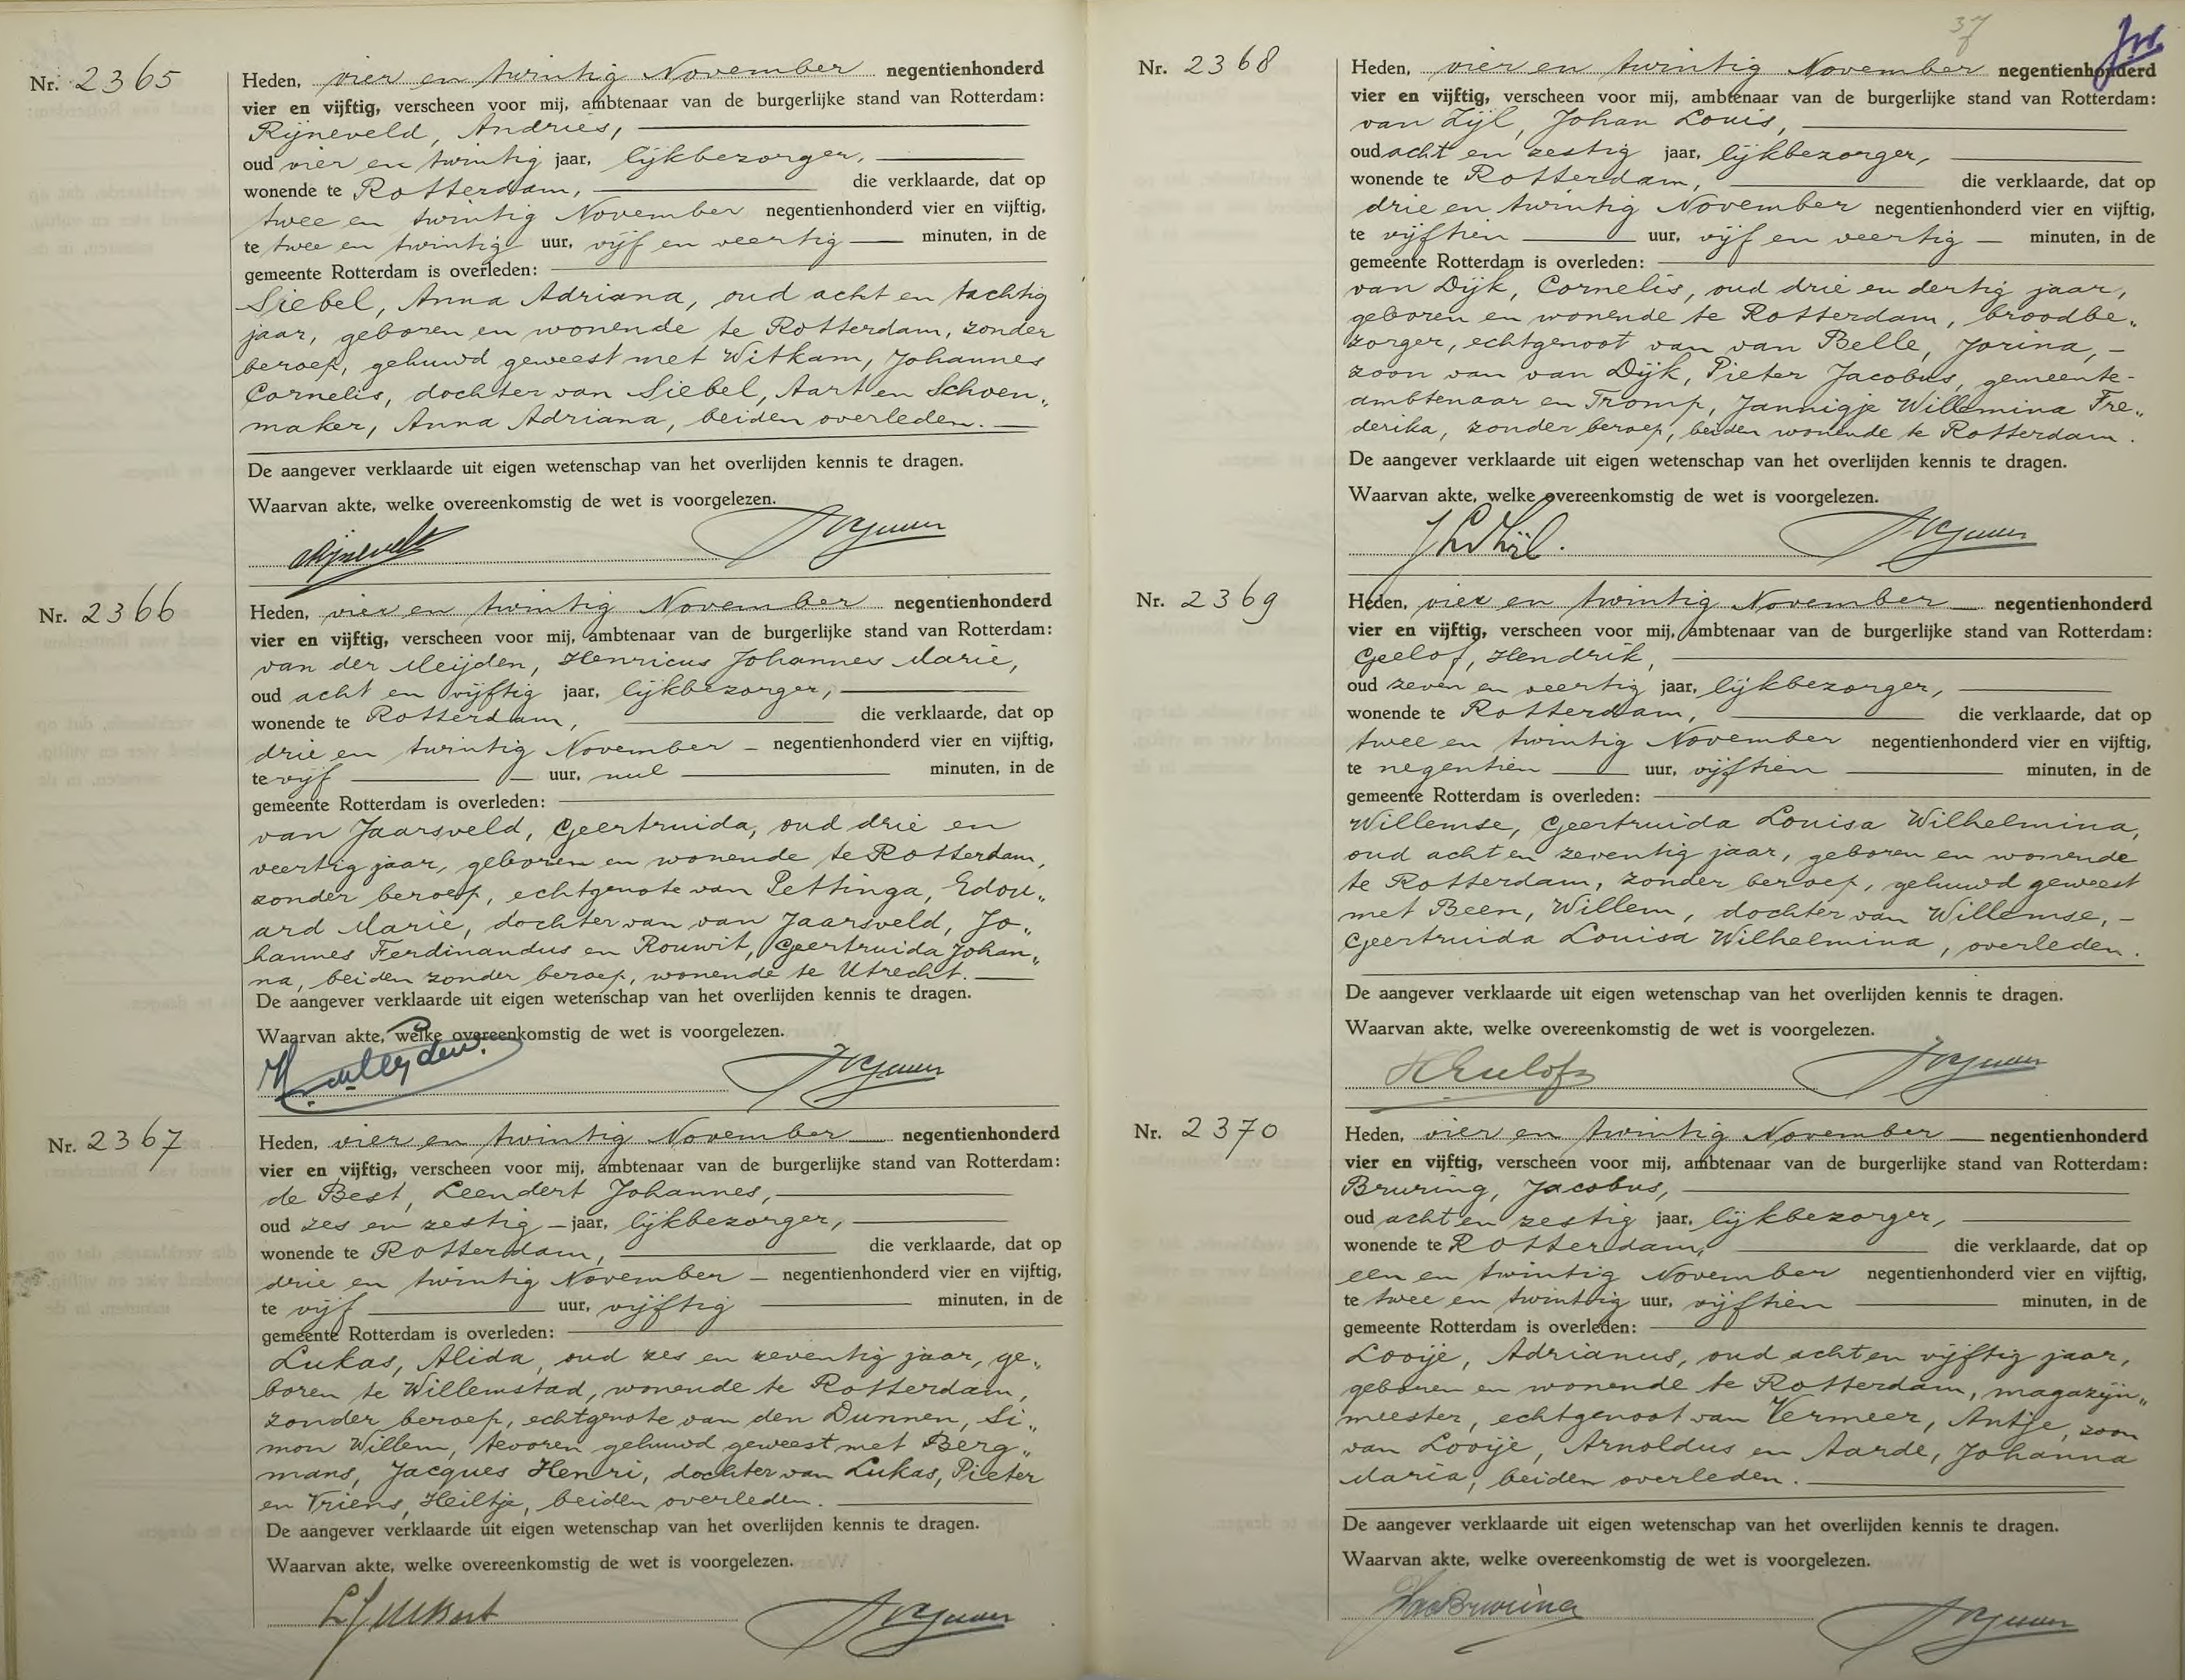 Nr. 2365
Heden, vier en twintig November negentienhonderd
vier en vijftig, verscheen voor mij, ambtenaar van de burgerlijke stand van Rotterdam:
Rijneveld, Andries,
oud vier en twintig jaar, lijkbezorger,
wonende te Rotterdam, die verklaarde, dat op
twee en twintig November negentienhonderd vier en vijftig,
te twee en twintig uur, vijf en veertig minuten, in de
gemeente Rotterdam is overleden:
Siebel, Anna Adriana, oud acht en tachtig
jaar, geboren en wonende te Rotterdam, zonder
beroep, gehuwd geweest met Witkam, Johannes
Cornelis, dochter van Siebel, Aart en Schoen„
maker, Anna Adriana, beiden overleden.
De aangever verklaarde uit eigen wetenschap van het overlijden kennis te dragen.
Waarvan akte, welke overeenkomstig de wet is voorgelezen.
Nr. 2366
Heden, vier en twintig November negentienhonderd
vier en vijftig, verscheen voor mij, ambtenaar van de burgerlijke stand van Rotterdam:
van der Meijden, Henricus Johannes Marie,
oud acht en vijftig jaar, lijkbezorger,
wonende te Rotterdam, die verklaarde, dat op
drie en twintig November negentienhonderd vier en vijftig,
te vijf uur, nul minuten, in de
gemeente Rotterdam is overleden:
van Jaarsveld, Geertruida, oud drie en
veertig jaar, geboren en wonende te Rotterdam,
zonder beroep, echtgenote van Pettinga, Edou„
ard Marie, dochter van van Jaarsveld, Jo„
hannes Ferdinandus en Rouwit, Geertruida Johan„
na, beiden zonder beroep, wonende te Utrecht.
De aangever verklaarde uit eigen wetenschap van het overlijden kennis te dragen.
Waarvan akte, welke overeenkomstig de wet is voorgelezen.
Nr. 2367
Heden, vier en twintig November negentienhonderd
vier en vijftig, verscheen voor mij, ambtenaar van de burgerlijke stand van Rotterdam:
de Best, Leendert Johannes,
oud zes en zestig jaar, lijkbezorger,
wonende te Rotterdam, die verklaarde, dat op
drie en twintig November negentienhonderd vier en vijftig,
te vijf uur, vijftig minuten, in de
gemeente Rotterdam is overleden:
Lukas, Alida, oud zes en zeventig jaar, ge„
boren te Willemstad, wonende te Rotterdam,
zonder beroep, echtgenote van den Dunnen, Si„
mon Willem, tevoren gehuwd geweest met Berg„
mans, Jacques Henri, dochter van Lukas, Pieter
en Vriens, Heiltje, beiden overleden.
De aangever verklaarde uit eigen wetenschap van het overlijden kennis te dragen.
Waarvan akte, welke overeenkomstig de wet is voorgelezen.
37
Nr. 2368
Heden, vier en twintig November negentienhonderd
vier en vijftig, verscheen voor mij, ambtenaar van de burgerlijke stand van Rotterdam:
van Zijl, Johan Louis,
oud acht en zestig jaar, lijkbezorger,
wonende te Rotterdam, die verklaarde, dat op
drie en twintig November negentienhonderd vier en vijftig,
te vijftien uur, vijf en veertig minuten, in de
gemeente Rotterdam is overleden:
van Dijk, Cornelis, oud drie en dertig jaar,
geboren en wonende te Rotterdam, broodbe„
zorger, echtgenoot van van Belle, Jorina,
zoon van van Dijk, Pieter Jacobus, gemeente-
ambtenaar en Tromp, Jannigje Willemina Fre„
derika, zonder beroep, beiden wonende te Rotterdam.
De aangever verklaarde uit eigen wetenschap van het overlijden kennis te dragen.
Waarvan akte, welke overeenkomstig de wet is voorgelezen.
Nr. 2369
Heden, vier en twintig November negentienhonderd
vier en vijftig, verscheen voor mij, ambtenaar van de burgerlijke stand van Rotterdam:
Geelof, Hendrik,
oud zeven en veertig jaar, lijkbezorger,
wonende te Rotterdam, die verklaarde, dat op
twee en twintig November negentienhonderd vier en vijftig,
te negentien uur, vijftien minuten, in de
gemeente Rotterdam is overleden:
Willemse, Geertruida Louisa Wilhelmina,
oud acht en zeventig jaar, geboren en wonende
te Rotterdam, zonder beroep, gehuwd geweest
met Been, Willem, dochter van Willemse,
Geertruida Louisa Wilhelmina, overleden.
De aangever verklaarde uit eigen wetenschap van het overlijden kennis te dragen.
Waarvan akte, welke overeenkomstig de wet is voorgelezen.
Nr. 2370
Heden, vier en twintig November negentienhonderd
vier en vijftig, verscheen voor mij, ambtenaar van de burgerlijke stand van Rotterdam:
Bruring, Jacobus,
oud acht en zestig jaar, lijkbezorger,
wonende te Rotterdam, die verklaarde, dat op
een en twintig November negentienhonderd vier en vijftig,
te twee en twintig uur, vijftien minuten, in de
gemeente Rotterdam is overleden:
Looije, Adrianus, oud acht en vijftig jaar,
geboren en wonende te Rotterdam, magazijn„
meester, echtgenoot van Vermeer, Antje, zoon
van Looije, Arnoldus en Aarde, Johanna
Maria, beiden overleden.
De aangever verklaarde uit eigen wetenschap van het overlijden kennis te dragen.
Waarvan akte, welke overeenkomstig de wet is voorgelezen.